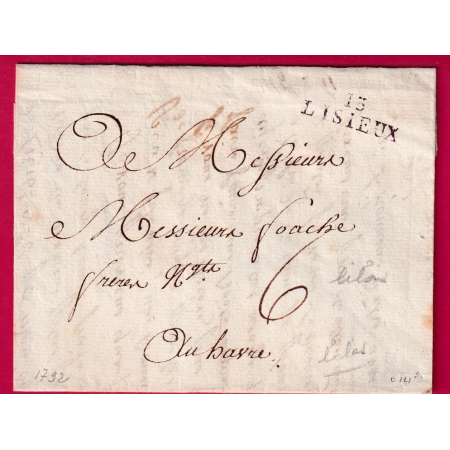 13
LISIEUX
A Messieurs
Messieurs foache
freres Ngts
Au havre
6
lilas
lilas
1792